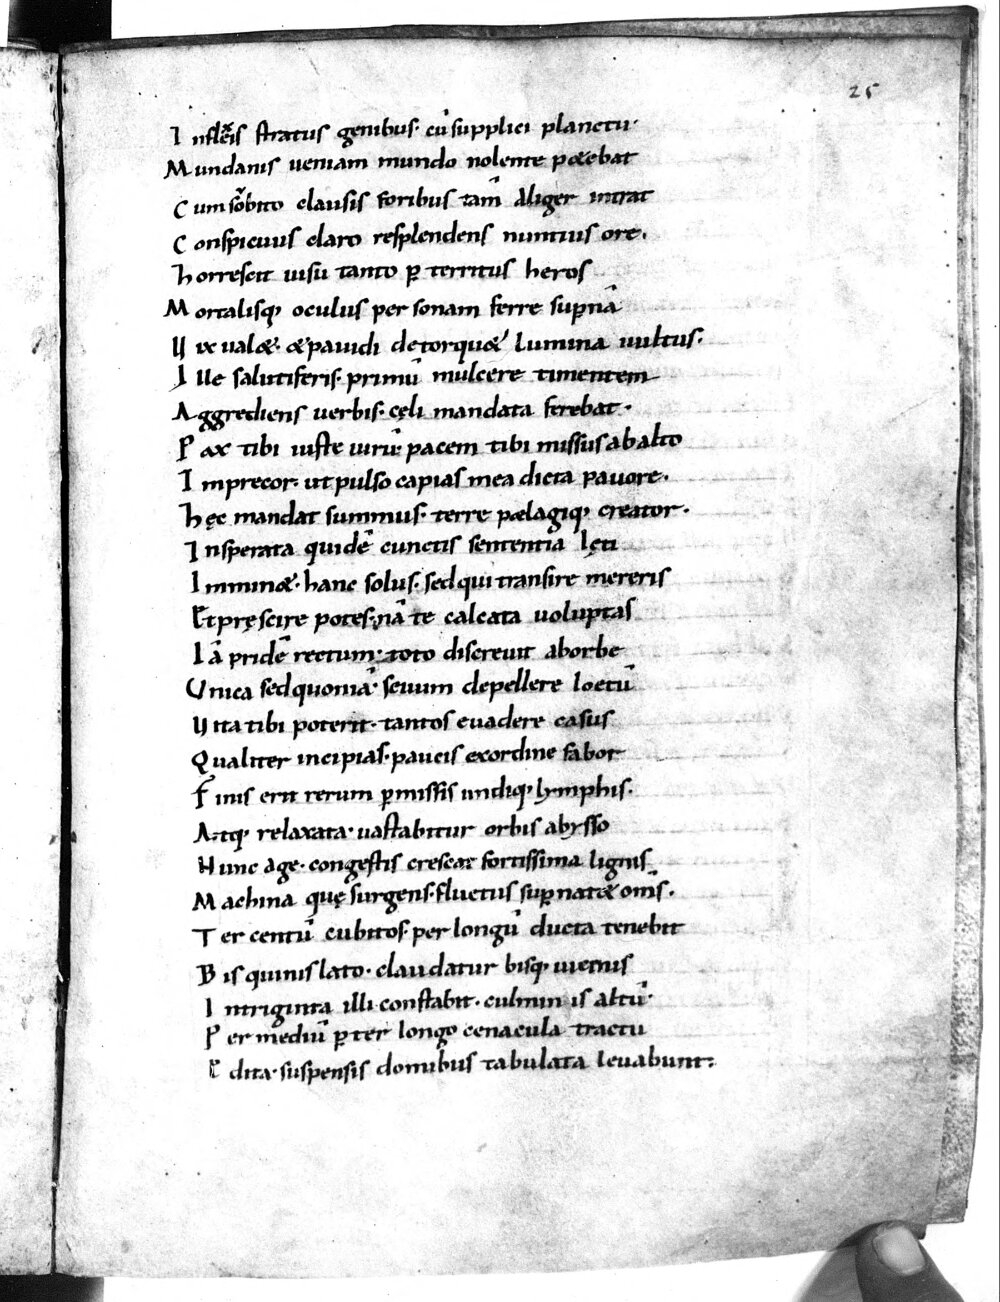 25
Inflexis stratus genibus· cū supplici planctu·
Mundanis ueniam mundo nolente petebat
Cum subito clausis foribus tam̄ aliger intrat
Conspicuus claro resplendens nuntius ore.
Horrescit uisu tanto ꝑterritus heros
Mortalisq; oculus personam ferre supnā
Vix ualet· et pauidi detorquet lumina uultus.
Ille salutiferis· primū mulcere timentem
Aggrediens uerbis· cęli mandata ferebat·
Pax tibi iuste uirū· pacem tibi missus ab alto
Imprecor· ut pulso capias mea dicta pauore·
Hęc mandat summus· terre pelagiq; creator·
Insperata quidē cunctis sententia lęti
Imminet· hanc solus· sed qui transire mereris
Et pręscire potes· nā te calcata uoluptas
Iā pridē rectum· toto discreuit ab orbe
Unica sed quoniā· seuum depellere loetū
Vita tibi poterit· tantos euadere casus
Qualiter incipias· paucis ex ordine fabor
Finis erit rerum ꝑmissis undiq; lymphis·
Atq; relaxata· uastabitur orbis abysso
Hunc age· congestis crescat fortissima lignis
Machina quę surgens· fluctus supnatet om̄s·
Ter centū cubitos· per longū ducta tenebit
Bis quinis lato· claudatur bisq; uicenis
In triginta illi constabit· culminis altū·
Per mediū ꝑter longo cenacula tractu
Edita· suspensis domibus tabulata leuabunt·